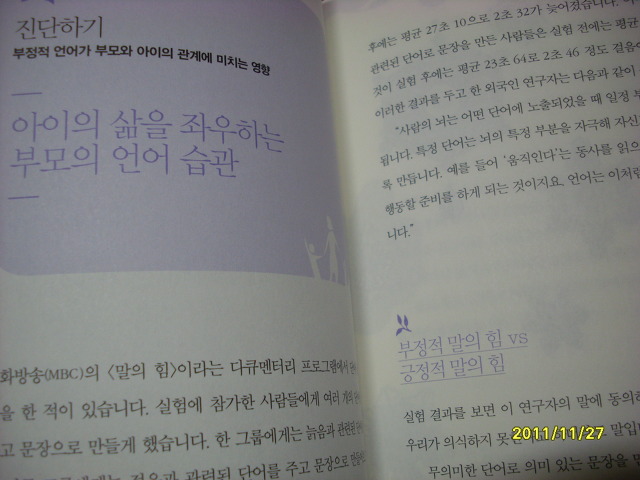 진단하기
부정적 언어가 부모와 아이의 관계에 미치는 영향
아이의 삶을 좌우하는
부모의 언어 습관
화방송(MBC)의 〈말의 힘〉이라는 다큐멘터리 프로그램에서
을 한 적이 있습니다. 실험에 참가한 사람들에게 여러 개의
고 문장으로 만들게 했습니다. 한 그룹에게는 늙음과 관련된
젊음과 관련된 단어를 주고 문장으로
후에는 평균 27초 10으로 2초 32가 늦어졌습니다.
관련된 단어로 문장을 만든 사람들은 실험 전에는 평균
것이 실험 후에는 평균 23초 64로 2초 46 정도 걸음이
이러한 결과를 두고 한 외국인 연구자는 다음과 같이
“사람의 뇌는 어떤 단어에 노출되었을 때 일정 부
됩니다. 특정 단어는 뇌의 특정 부분을 자극해 자신
록 만듭니다. 예를 들어 ‘움직인다’는 동사를 읽으
행동할 준비를 하게 되는 것이지요. 언어는 이처럼
니다.”
부정적 말의 힘 VS
긍정적 말의 힘
실험 결과를 보면 이 연구자의 말에 동의하
우리가 의식하지 못 말입니
무의미한 단어로 의미 있는 문장을
2011/11/27